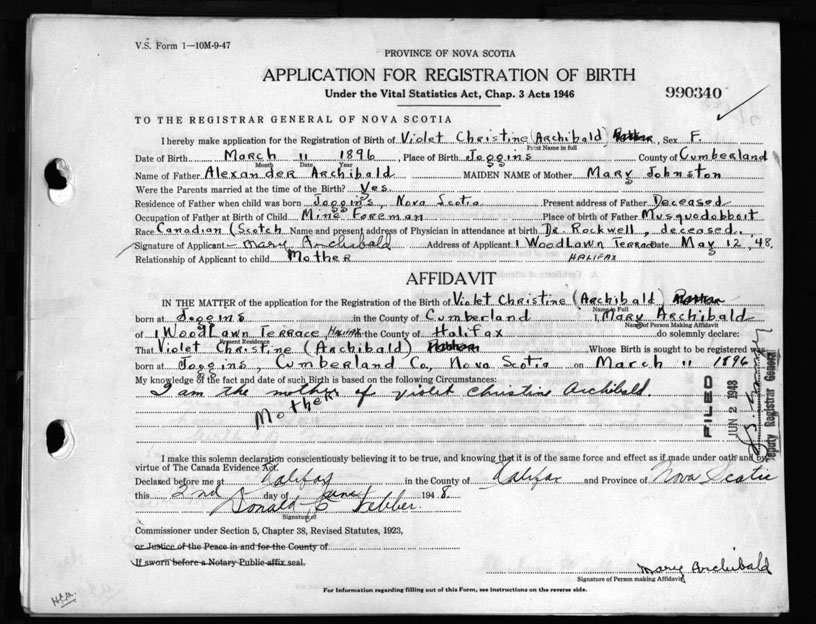 V.S. Form 1—10M-9-47
PROVINCE OF NOVA SCOTIA
APPLICATION FOR REGISTRATION OF BIRTH
Under the Vital Statistics Act, Chap. 3 Acts 1946
990340
TO THE REGISTRAR GENERAL OF NOVA SCOTIA
I hereby make application for the Registration of Birth of Violet Christine (Archibald) , Sex F.
Print Name in full
Date of Birth March 11 1896, Place of Birth Joggins County of Cumberland
Month Date Year
Name of Father Alexander Archibald MAIDEN NAME of Mother Mary Johnston
Were the Parents married at the time of the Birth? Yes
Residence of Father when child was born Joggins, Nova Scotia Present address of Father Deceased
Occupation of Father at Birth of Child Mine Foreman Place of birth of Father Musquodobboit
Race Canadian (Scotch Name and present address of Physician in attendance at birth Dr. Rockwell, deceased.
Signature of Applicant Mary Archibald Address of Applicant 1 Woodlawn Terrace Date May 12, '48.
Relationship of Applicant to child Mother HALIFAX
AFFIDAVIT
IN THE MATTER of the application for the Registration of the Birth of Violet Christine (Archibald)
Name in Full
born at Joggins in the County of Cumberland I, Mary Archibald
Name of Person Making Affidavit
of 1 Woodlawn Terrace, HALIFAX in the County of Halifax do solemnly declare:
Present Residence
That Violet Christine (Archibald) Whose Birth is sought to be registered was
born at Joggins, Cumberland Co., Nova Scotia on March 11 1896
My knowledge of the fact and date of such Birth is based on the following Circumstances:
I am the mother of Violet Christine Archibald.
Mother
FILED
JUN 2 1948
Deputy Registrar General
I make this solemn declaration conscientiously believing it to be true, and knowing that it is of the same force and effect as if made under oath and by
virtue of The Canada Evidence Act.
Declared before me at Halifax in the County of Halifax and Province of Nova Scotia
this 2nd day of June 1948.
Donald C Webber.
Signature of
Commissioner under Section 5, Chapter 38, Revised Statutes, 1923,
or Justice of the Peace in and for the County of
If sworn before a Notary Public affix seal.
Mary Archibald
Signature of Person making Affidavit
For Information regarding filling out of this Form, see instructions on the reverse side.